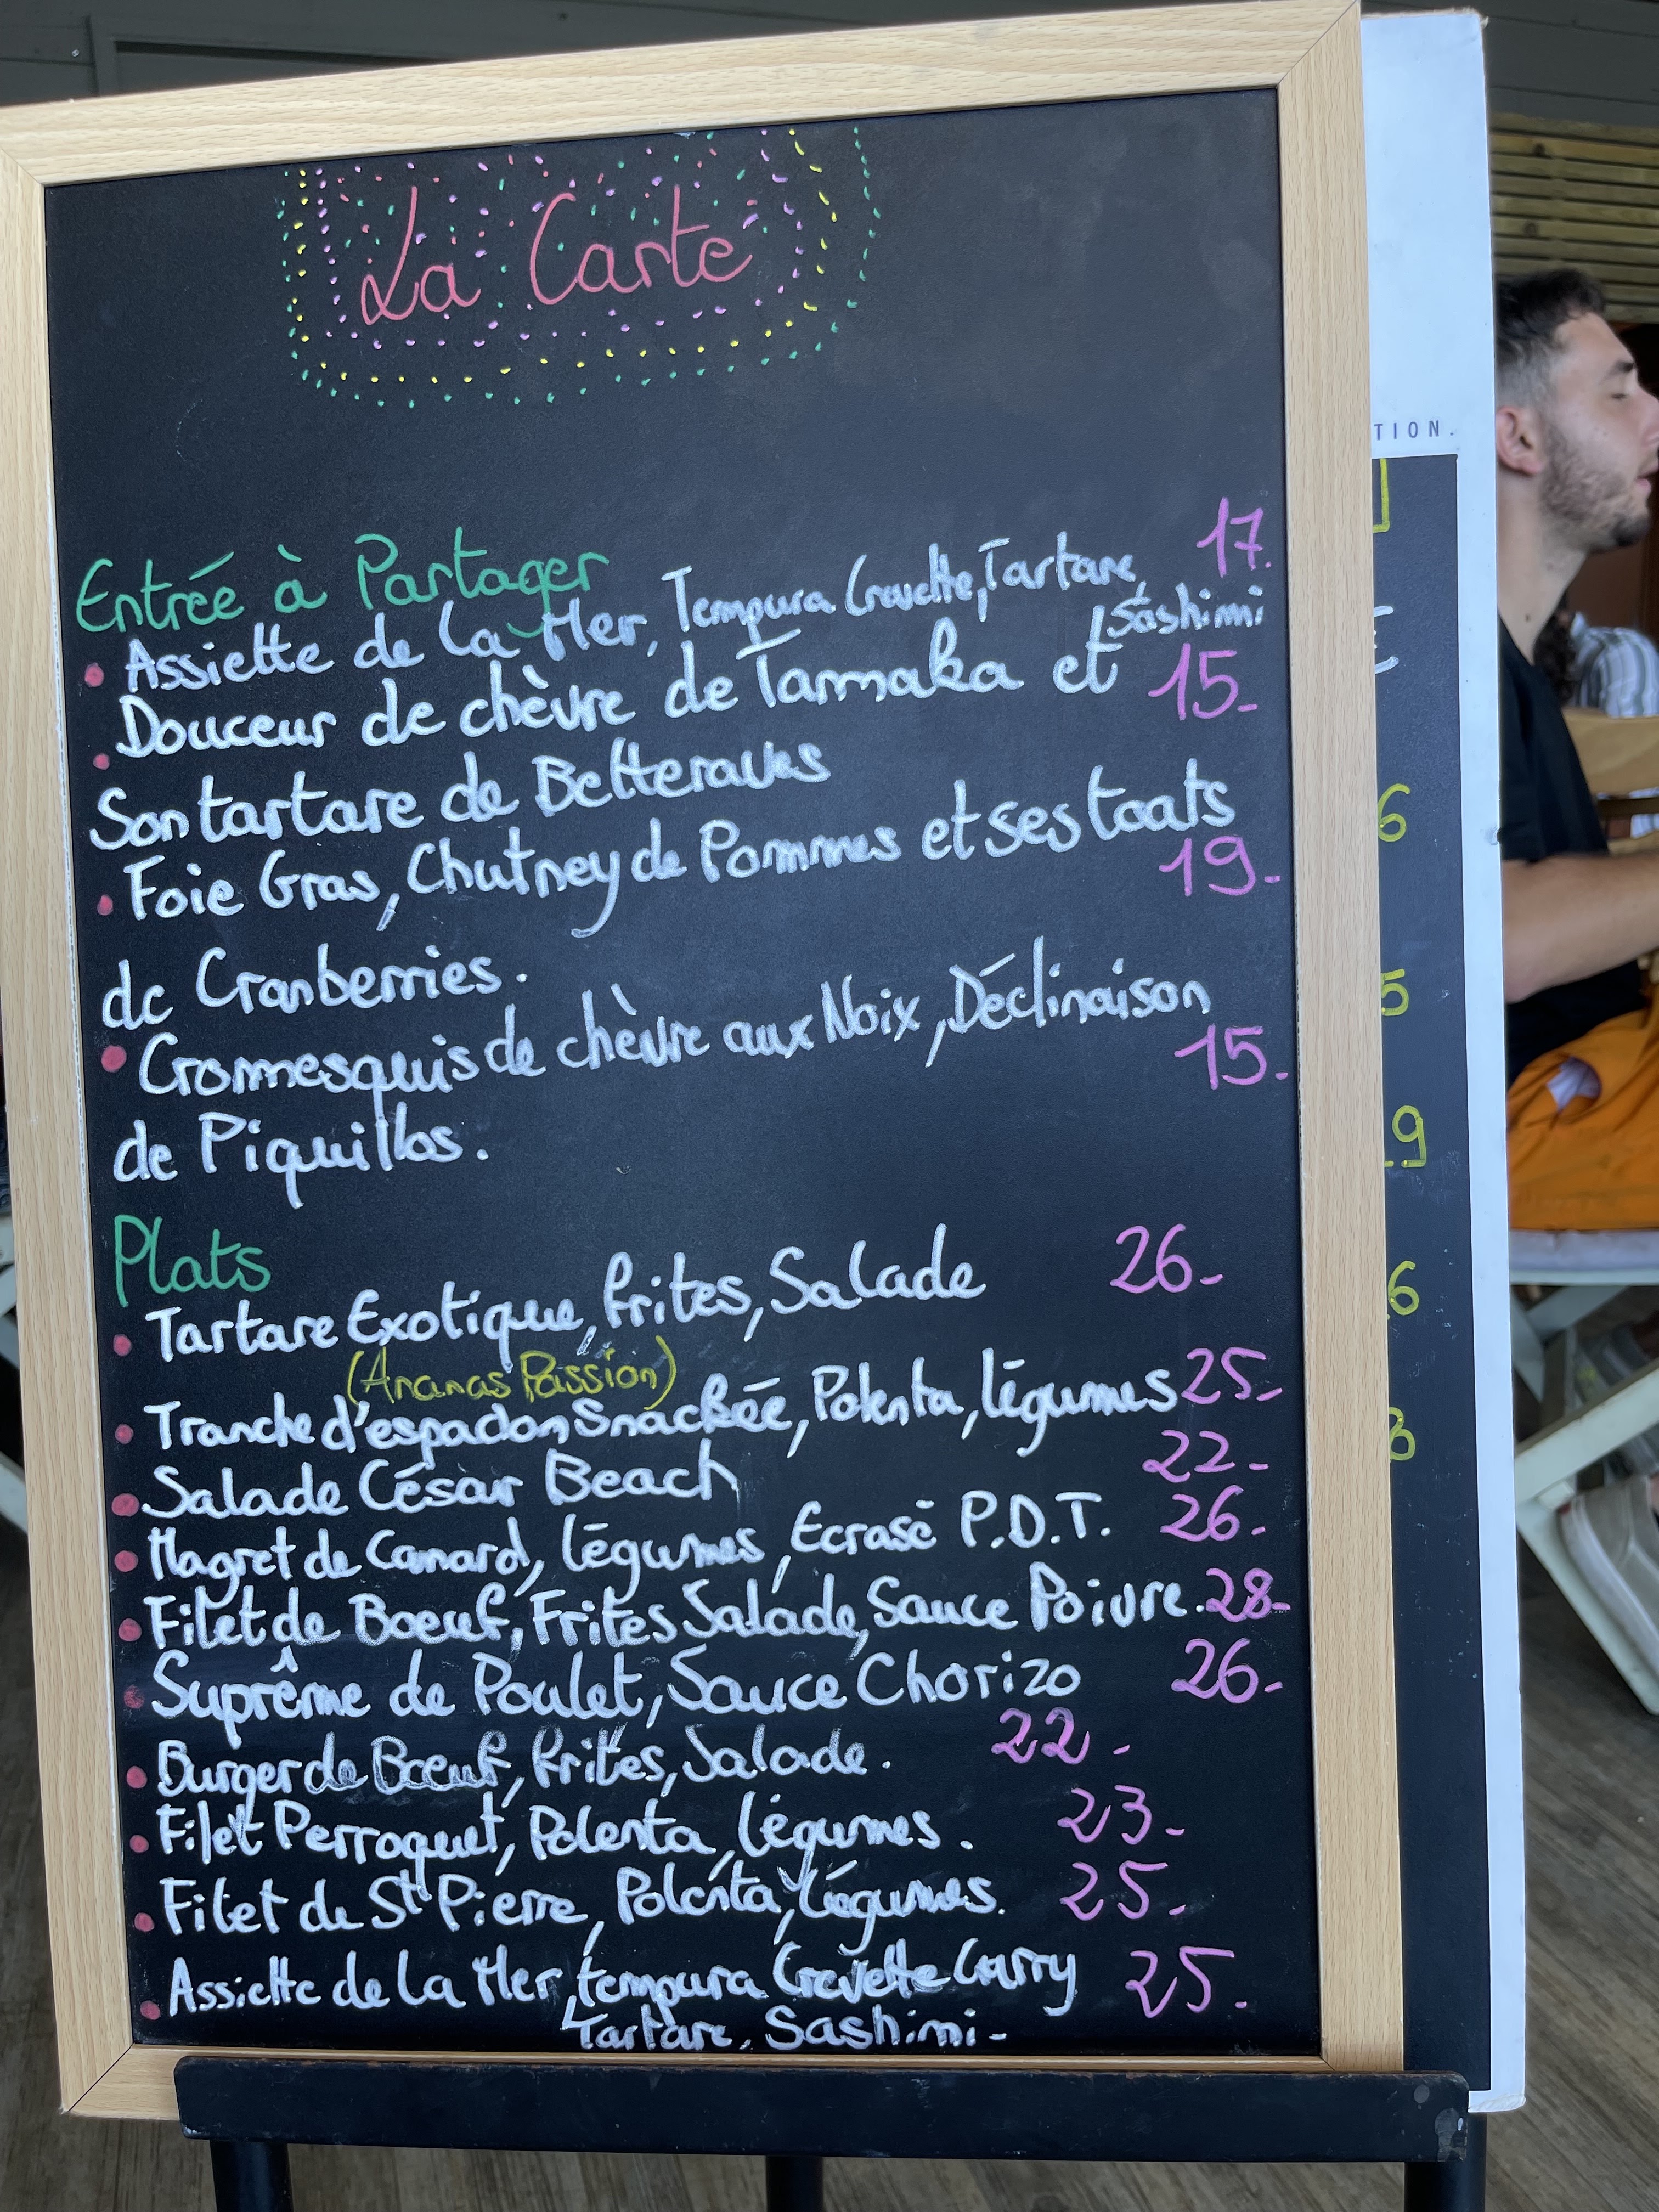 La Carte
Entrée à Partager
• Assiette de la Mer, Tempura Crevette, Tartare, 17.
Sashimi
• Douceur de chèvre de Tamaka et 15-
Son tartare de Betteraves
• Foie Gras, Chutney de Pommes et ses toats
19-
de Cranberries.
• Cromesquis de chèvre aux Noix, Déclinaison
15.
de Piquillos.
Plats
• Tartare Exotique, frites, Salade 26-
(Ananas Passion)
• Tranche d'espadon Snackée, Polenta, légumes 25-
• Salade César Beach 22-
• Magret de Canard, légumes, Ecrasé P.D.T. 26-
• Filet de Boeuf, Frites Salade, Sauce Poivre. 28-
• Suprême de Poulet, Sauce Chorizo 26-
• Burger de Boeuf, frites, Salade. 22-
• Filet Perroquet, Polenta, légumes. 23-
• Filet de St Pierre, Polenta, légumes. 25-
• Assiette de la Mer, tempura Crevette Curry 25-
Tartare, Sashimi-
TION.
6
5
19
6
8